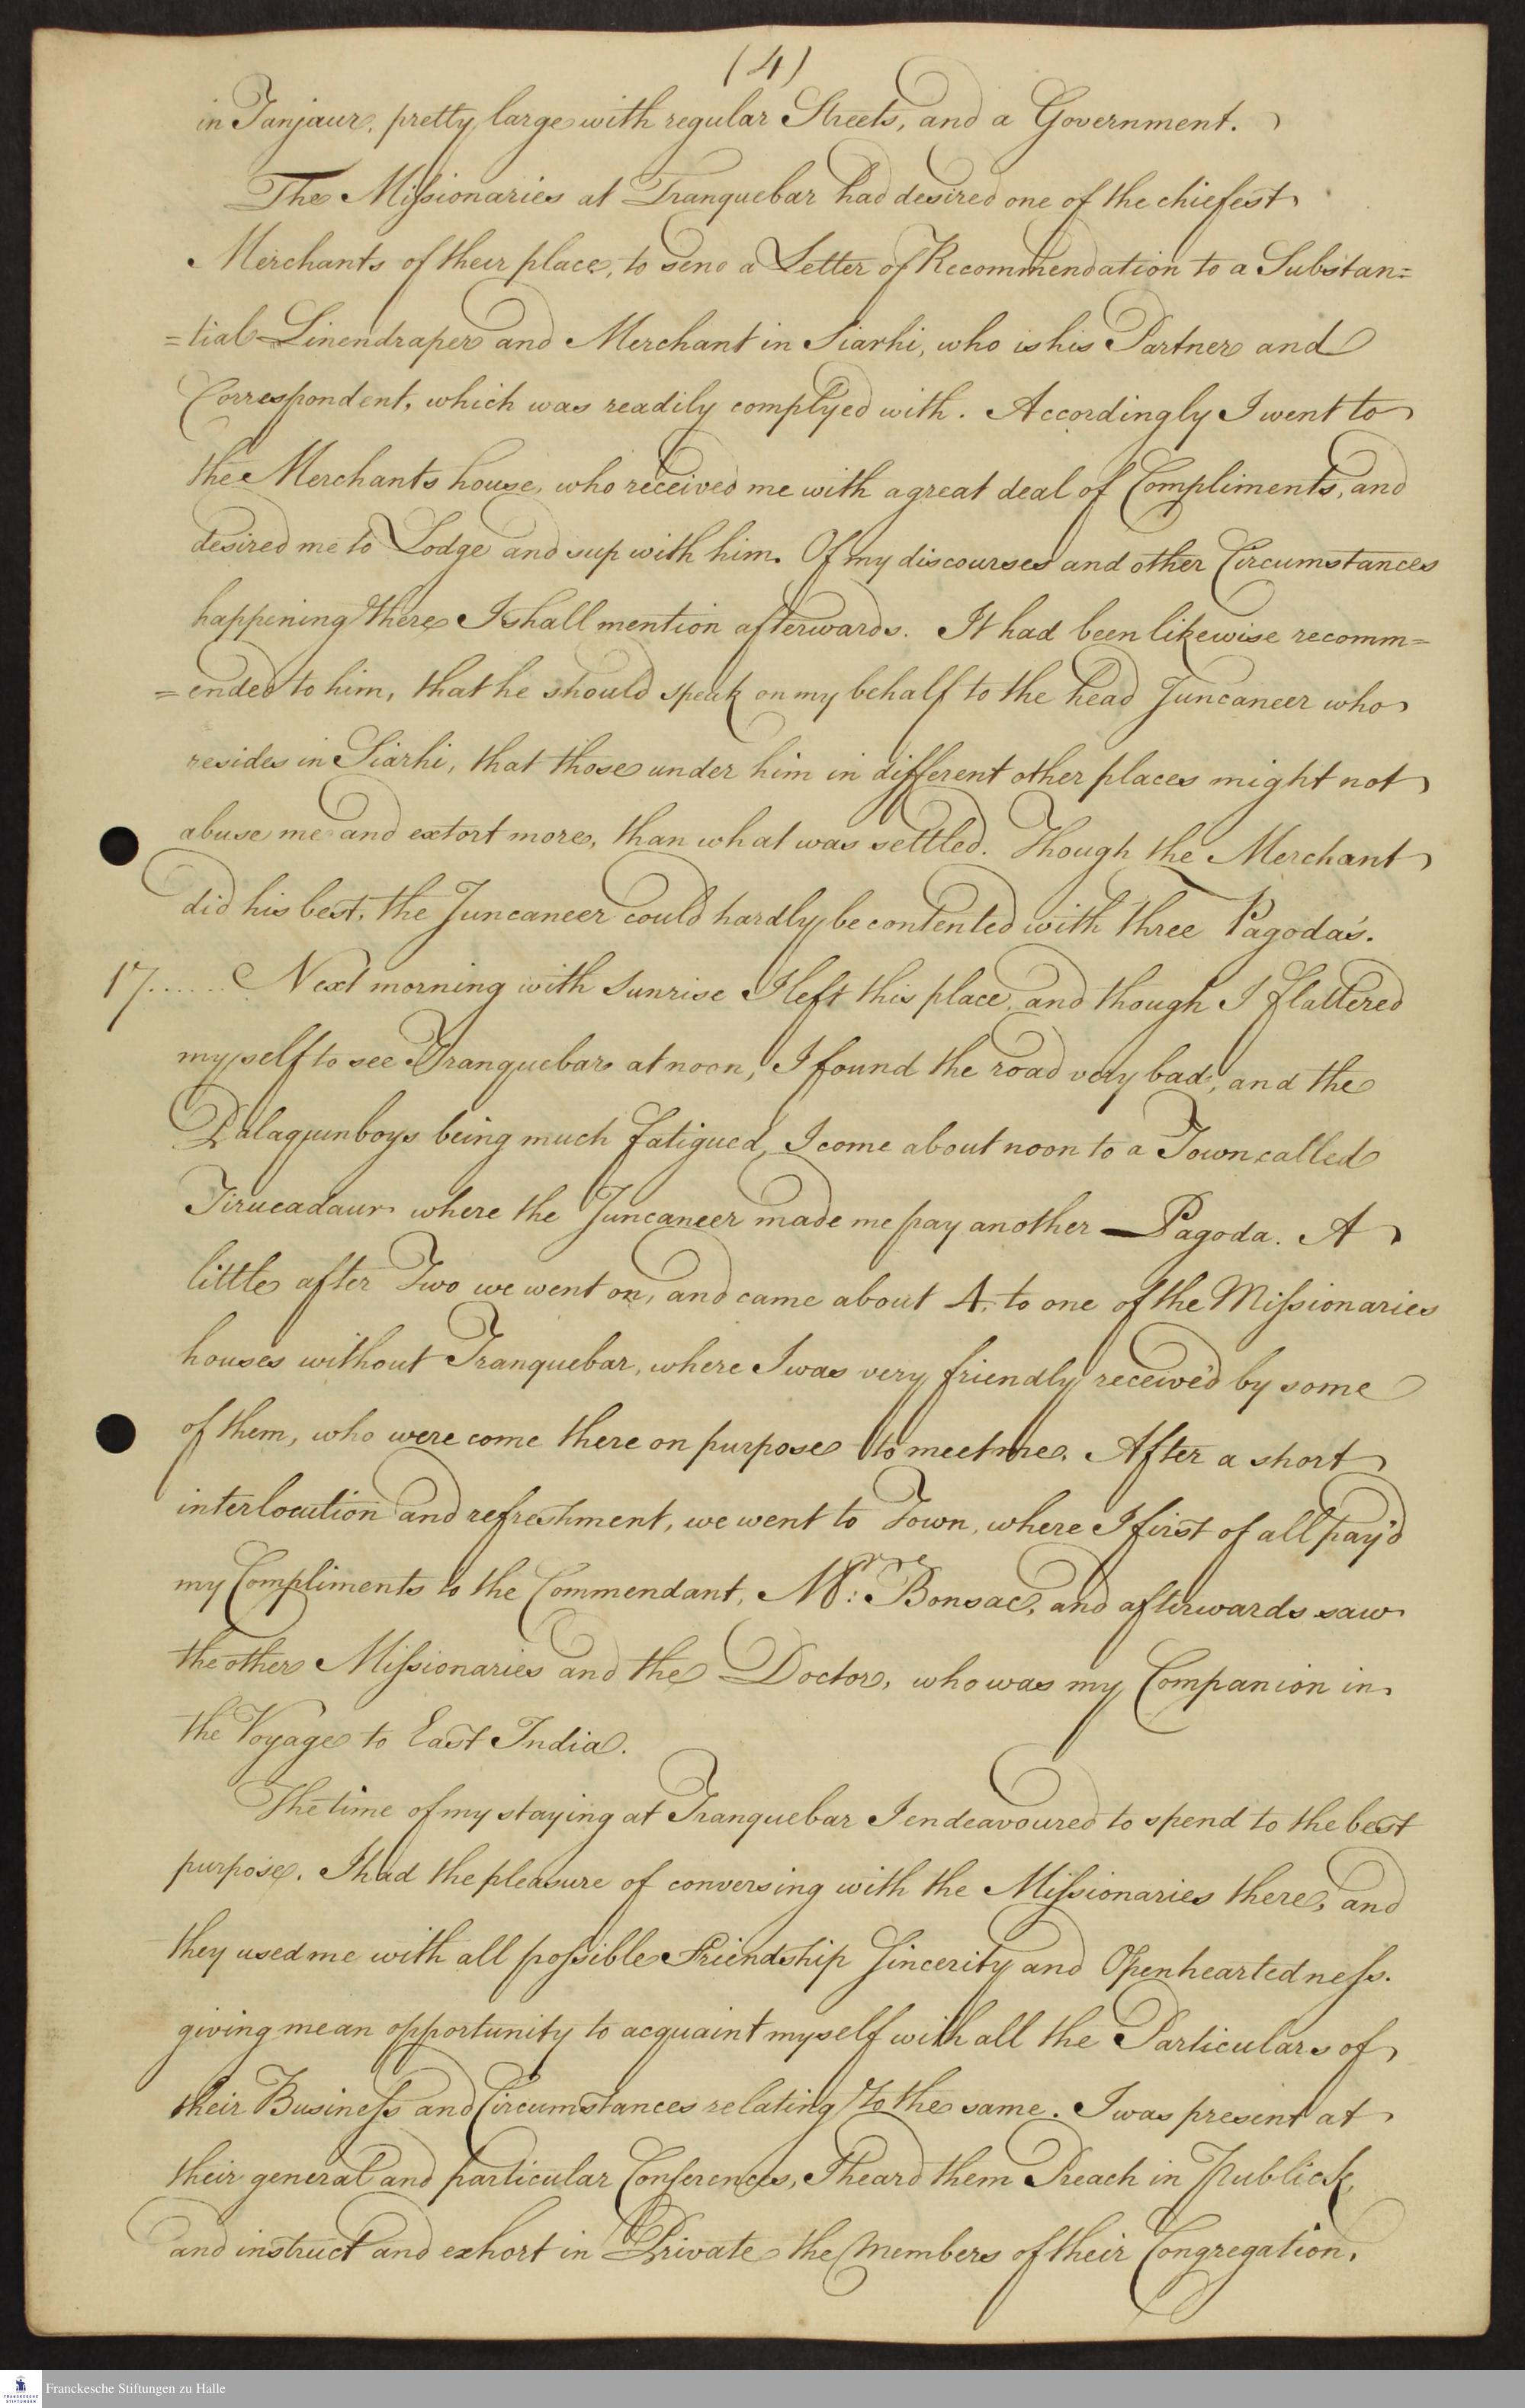 (4)
in Tanjaur, pretty large with regular Streets, and a Government.
The Missionaries at Tranquebar had desired one of the chiefest
Merchants of their place, to send a Letter of Recommendation to a Substan=
=tial Linendraper and Merchant in Siarhi, who is his Partner and
Correspondent, which was readily complyed with. Accordingly I went to
the Merchants house, who received me with a great deal of Compliments, and
desired me to Lodge and sup with him. Of my discourses and other Circumstances
happening there I shall mention afterwards. It had been likewise recomm=
=ended to him, that he should speak on my behalf to the head Juncaneer who
resides in Siarhi, that those under him in different other places might not
abuse me and extort more, than what was settled. Though the Merchant
did his best, the Juncaneer could hardly be contented with three Pagoda's.
17...... Next morning with Sunrise I left this place, and though I flattered
myself to see Tranquebar at noon, I found the road very bad, and the
Palaquinboys being much fatigued, I come about noon to a Town called
Tirucadaur where the Juncaneer made me pay another Pagoda. A
little after Two we went on, and came about 4, to one of the Missionaries
houses without Tranquebar, where I was very friendly receiv'd by some
of them, who were come there on purpose to meet me. After a short
interlocution and refreshment, we went to Town, where I first of all pay'd
my Compliments to the Commendant, Mr: Bonsac, and afterwards saw
the other Missionaries and the Doctor, who was my Companion in
the Voyage to East India.
The time of my staying at Tranquebar I endeavoured to spend to the best
purpose. I had the pleasure of conversing with the Missionaries there, and
they used me with all possible Friendship Sincerity and Openheartedness.
giving me an opportunity to acquaint myself with all the Particulars of
their Business and Circumstances relating to the same. I was present at
their general and particular Conferences, I heard them Preach in Publick,
and instruct and exhort in Private the Members of their Congregation.
Franckesche Stiftungen zu Halle